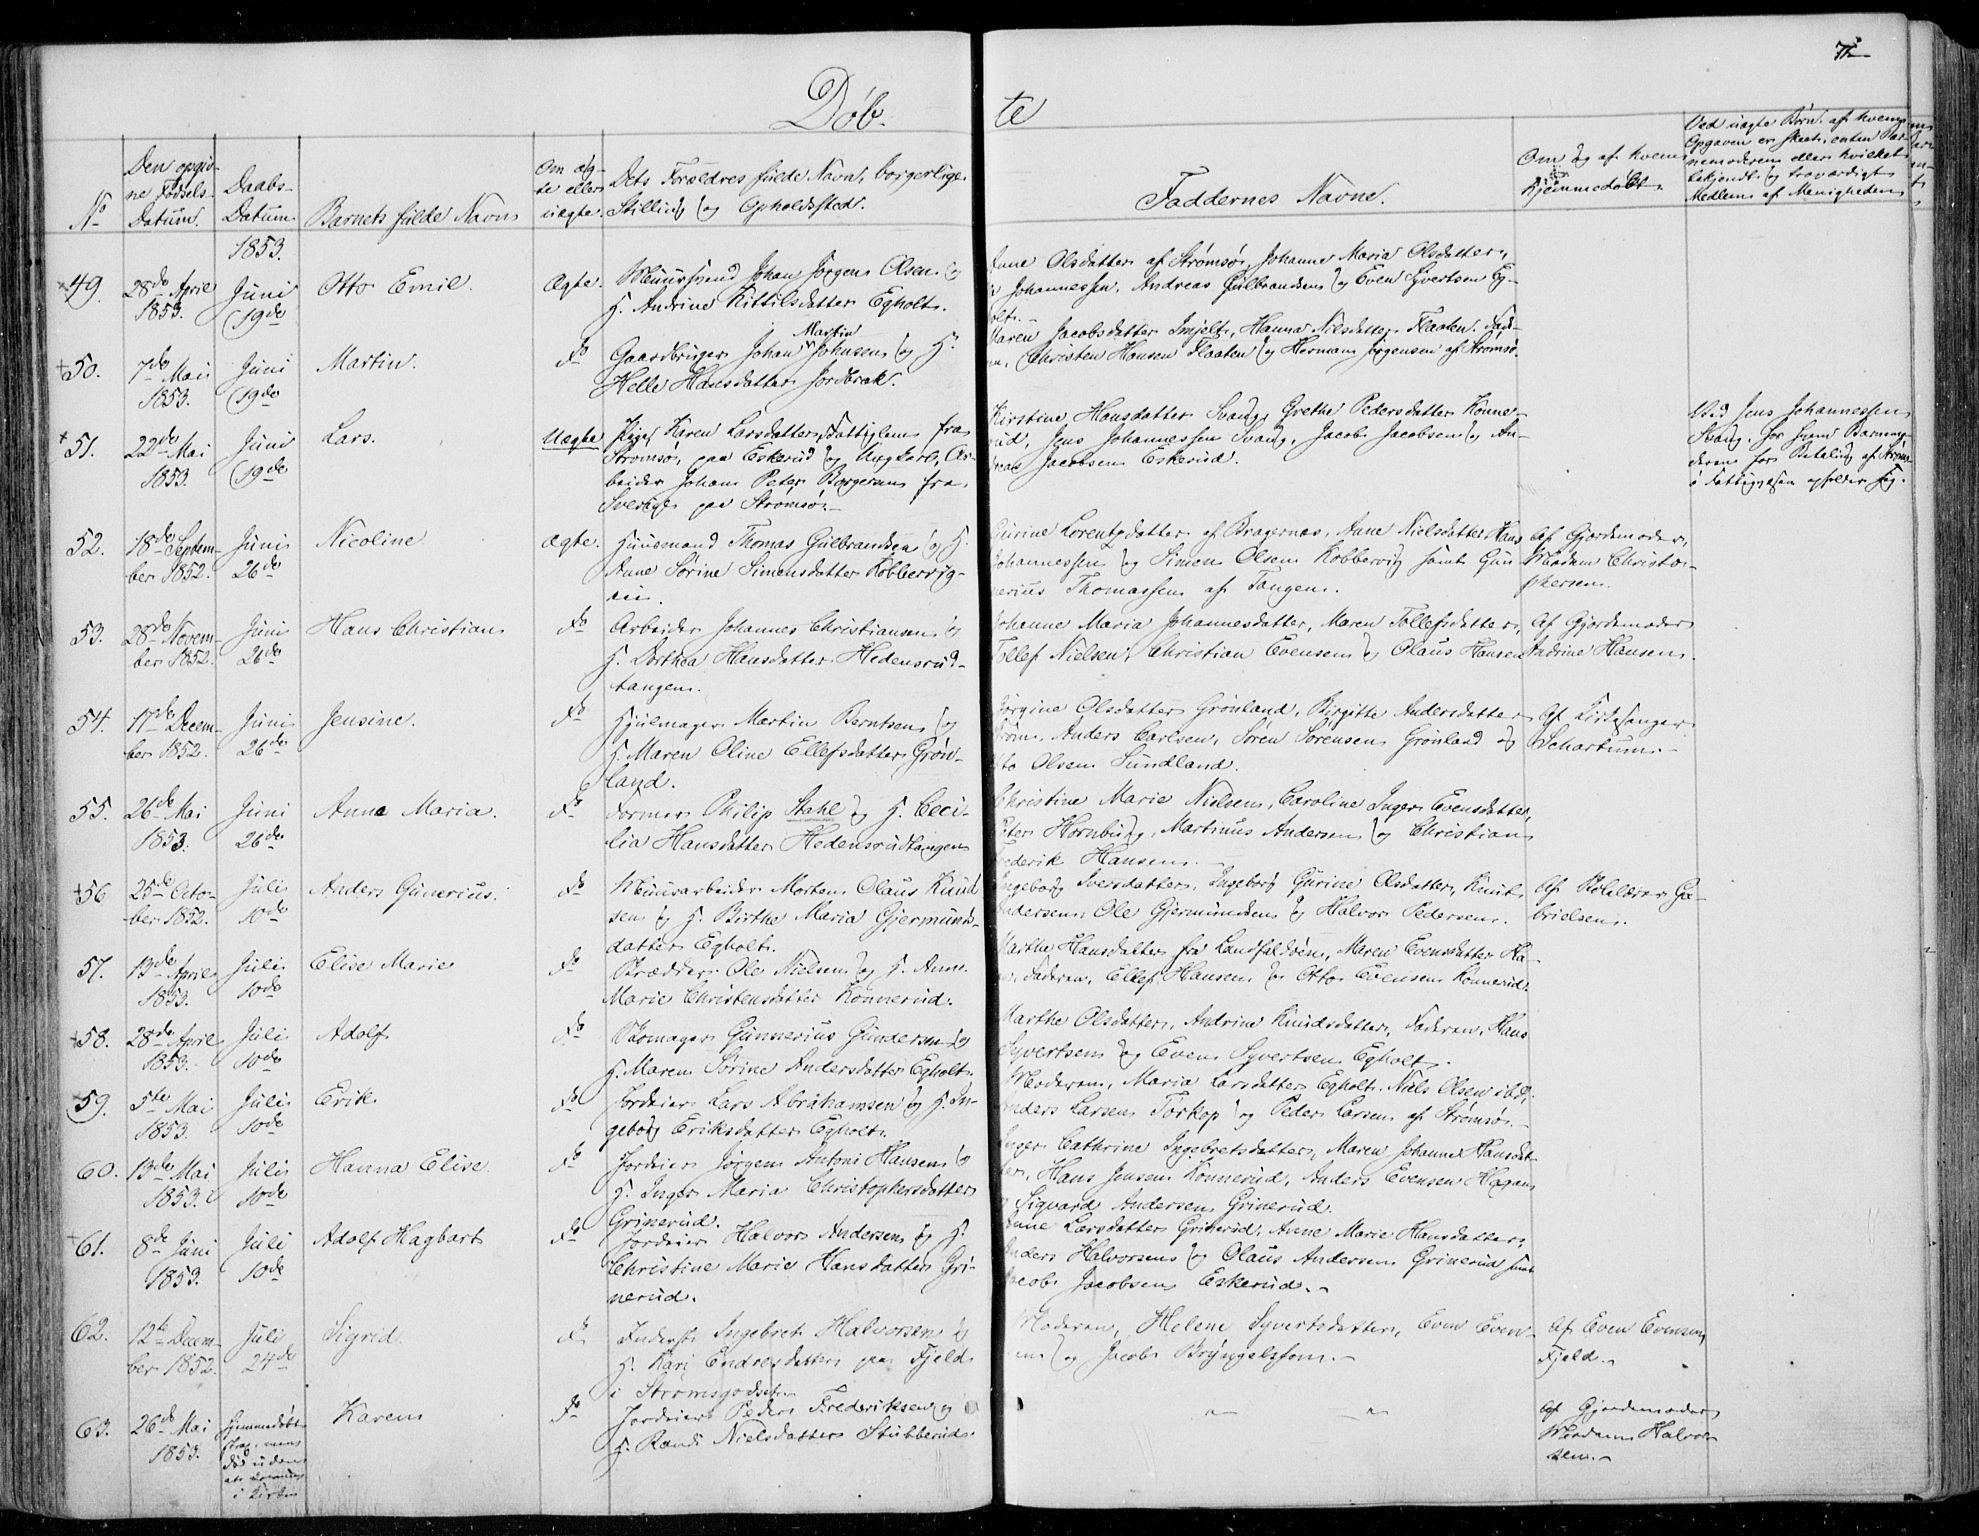 72
Døb-
te
No
Den opgiv-
ne Fødsels-
Datum.
Daabs-
Datum
Barnets fulde Navn
Om æg-
te eller
uægte.
Dets Forældres fulde Navn, borgerlige
Stilling og Opholdssted.
Faddernes Navne.
Om og af hvem
hjemmedøbt.
Ved uægte Børn: af hvem
Opgaven er skeet, enten Bar-
nemoderen eller hvilket
bekjendt og troværdigt
Medlem af Menigheden
1853.
49.
28de April
1853.
Juni
19de
Otto Emil.
Ægte.
Muursvend Johan Jørgen Olsen og
H. Andrine Kittilsdatter Egholt.
Anne Olsdatter af Strømsø, Johanne Maria Olsdatter,
Johannessen, Andreas Gulbrandsen og Even Syvertsen Eg-
holt.
50.
7de Mai
1853.
Juni
19de
Martin.
do
Gaardbruger Johan Martin Johnsen og H.
Helle Hansdatter Jordbræk.
Maren Jacobsdatter Imjelt, Hanna Nilsdatter Flaaten. Fade-
ren, Christen Hansen Flaaten og Herman Jørgensen af Strømsø.
51.
22de Mai
1853.
Juni
19de
Lars.
Uægte
Pige Karen Larsdatter, Fattiglem fra
Strømsø, paa Eskerud og Ungkarl, Ar-
beider Johan Peter Borgeram fra
Sverige paa Strømsø.
Kirstine Hansdatter Svang, Grethe Pedersdatter Konne-
rud, Jens Johannessen Svang, Jacob Jacobsen og An-
dreas Jacobsen Eskerud.
Ved Jens Johannessen
Svang, hos hvem Barnemo-
deren for Betaling af Strøms-
ø Fattigvæsen opholder sig.
52.
18de Septem-
ber 1852.
Juni
26de
Nicoline
Ægte.
Huusmand Thomas Gulbrandsen og H.
Anne Sørine Simensdatter Kobbervig-
eie.
Gurine Lorentzdatter af Bragernæs, Anne Nielsdatter, Hans
Johannessen og Simen Olsen Kobbervig samt Gun-
nerius Thomassen af Tangen.
Af Gjordemoder
Madam Christo-
phersen.
53.
28de Novem-
ber 1852.
Juni
26de
Hans Christian
do
Arbeider Johannes Christiansen og
H. Dorthea Hansdatter Hedensrud-
tangen.
Johanne Maria Johannesdatter, Maren Tollefsdatter,
Tollef Nielsen, Christian Evensen og Olaus Hansen
Af Gjordemoder
Andrine Hansen.
54.
17de Decem-
ber 1852.
Juni
26de
Jensine.
do
Hjulmager Martin Berntsen og
H. Maren Oline Ellefsdatter Grøn-
land.
Jørgine Olsdatter Grønland, Birgitte Andersdatter
Strøm, Anders Carlsen, Søren Sørensen Grønland og
Otto Olsen Sundland.
Af Kirkesanger
Schartum.
55.
26de Mai
1853.
Juni
26de
Anna Maria.
do
Former Philip Stahl og H. Ceci-
lia Hansdatter Hedensrudtangen
Christine Marie Nielsen, Caroline Inger Evensdatter,
Peter Hornburg, Martinus Andersen og Christian
Frederik Hansen.
56
25de Octo-
ber 1852.
Juli
10de
Anders Gunerius.
do
Muurarbeider Morten Olaus Knud-
sen og H. Birthe Maria Gjermunds-
datter Egholt.
Ingeborg Iversdatter, Ingeborg Gurine Olsdatter, Knut
Andersen, Ole Gjermundsen og Halvor Pedersen.
Af Skolelærer Ga-
brielsen.
57.
13de April
1853.
Juli
10de
Elise Marie
do
Skrædder Ole Nielsen og H. Anne
Marie Christensdatter Konnerud.
Marthe Hansdatter fra Landfaldøen, Maren Evensdatter Ha-
Faderen, Ellef Hansen og Otto Evensen Konnerud.
58.
28de April
1853.
Juli
10de
Adolf
do
Skomager Gunnerius Gundersen og
H. Maren Sørine Andersdatter Egholt
Marthe Olsdatter, Andrine Knudsdatter, Faderen, Hans
Syvertsen og Even Syvertsen Egholt.
59.
5te Mai
1853.
Juli
10de
Erik
do
Jordeier Lars Abrahamsen og H. In-
geborg Eriksdatter Egholt.
Moderen, Maria Larsdatter Egholt, Niels Olsen ibd,
Anders Larsen Torkop og Peder Larsen af Strømsø.
60.
13de Mai
1853.
Juli
10de
Hanna Elise
do
Jordeier Jørgen Antoni Hansen og
H. Inger Maria Christophersdatter
Grinerud.
Inger Cathrine Ingebretsdatter, Maren Johanne Hansdat-
ter, Hans Jensen Konnerud, Anders Evensen Hagan
Sigvard Andersen Grinerud.
61.
8de Juni
1853.
Juli
10de
Adolf Hagbart
do
Jordeier Halvor Andersen og H.
Christine Marie Hansdatter Gri-
nerud.
Anne Larsdatter Grinerud, Anne Marie Hansdatter,
Anders Halvorsen og Olaus Andersen Grinerud samt
Jacob Jacobsen Eskerud.
62.
12te Decem-
ber 1852
Juli
24de
Sigrid
do
Inderst Ingebret Halvorsen og
H. Kari Endresdatter paa Fjeld
i Strømsgodset.
Moderen, Helene Syvertsdatter, Even Even-
sen og Jacob Bryngelsson.
Af Even Evensen
Fjeld.
63.
26de Mai
1853.
Hjemmedøbt
strax, men
død uden
at komme
i Kirke
Karen
do
Jordeier Peder Frederiksen og
H. Randi Nielsdatter Stubberud.
Af Gjordemoder
Madam Halvor-
sen.